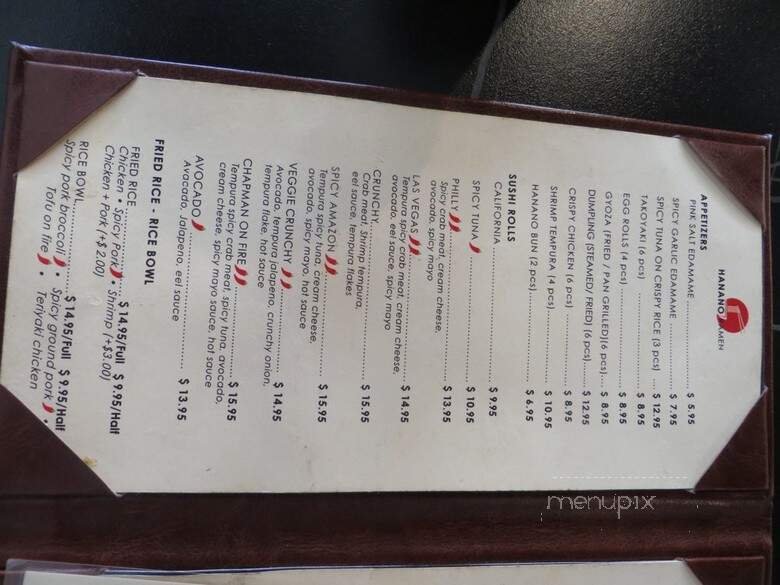 HANANO RAMEN
APPETIZERS
PINK SALT EDAMAME ........ $ 5.95
SPICY GARLIC EDAMAME $ 7.95
SPICY TUNA ON CRISPY RICE (3 pcs) .... $ 12.95
TAKOYAKI (6 pcs) ........ $ 8.95
EGG ROLLS (4 pcs) ........ $ 8.95
GYOZA (FRIED / PAN GRILLED)(6 pcs).... $ 8.95
DUMPLING (STEAMED/ FRIED) (6 pcs).... $ 12.95
CRISPY CHICKEN (6 pcs) ........ $ 8.95
SHRIMP TEMPURA (4 pcs) ........ $ 10.95
HANANO BUN (2 pcs) ........ $ 6.95
SUSHI ROLLS
CALIFORNIA ........ $ 9.95
SPICY TUNA ........ $ 10.95
PHILLY ........ $ 13.95
Spicy crab meat, cream cheese,
avocado, spicy mayo
LAS VEGAS ........ $ 14.95
Tempura spicy crab meat, cream cheese,
avocado, eel sauce, spicy mayo
CRUNCHY ........ $ 15.95
Crab meat, Shrimp tempura,
eel sauce, tempura flakes
SPICY AMAZON ........ $ 15.95
Tempura spicy tuna, cream cheese,
avocado, spicy mayo, hot sauce
VEGGIE CRUNCHY ........ $ 14.95
Avocado, tempura jalapeno, crunchy onion,
tempura flake, hot sauce
CHAPMAN ON FIRE ........ $ 15.95
Tempura spicy crab meat, spicy tuna, avocado,
cream cheese, spicy mayo sauce, hot sauce
AVOCADO ........ $ 13.95
Avocado, Jalapeno, eel sauce
FRIED RICE - RICE BOWL
FRIED RICE ........ $ 14.95/Full $ 9.95/Half
Chicken • Spicy Pork • Shrimp (+$3.00)
Chicken + Pork (+$ 2.00)
RICE BOWL........ $ 14.95/Full $ 9.95/Half
Spicy pork broccoli • Spicy ground pork •
Tofu on fire • Teriyaki chicken
menupix